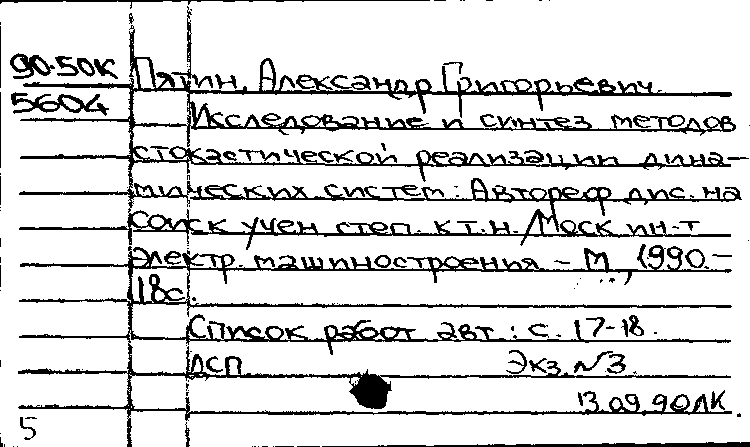 90-50К Пятин, Александр Григорьевич.
5604 Исследование и синтез методов
стохастической реализации дина-
мических систем: Автореф дис. на
соиск учен степ. к.т.н. / Моск ин-т
электр. машиностроения. - М., 1990. -
18с.
Список работ авт.: с. 17-18.
ДСП Экз. №3.
13.09.90ЛК.
5